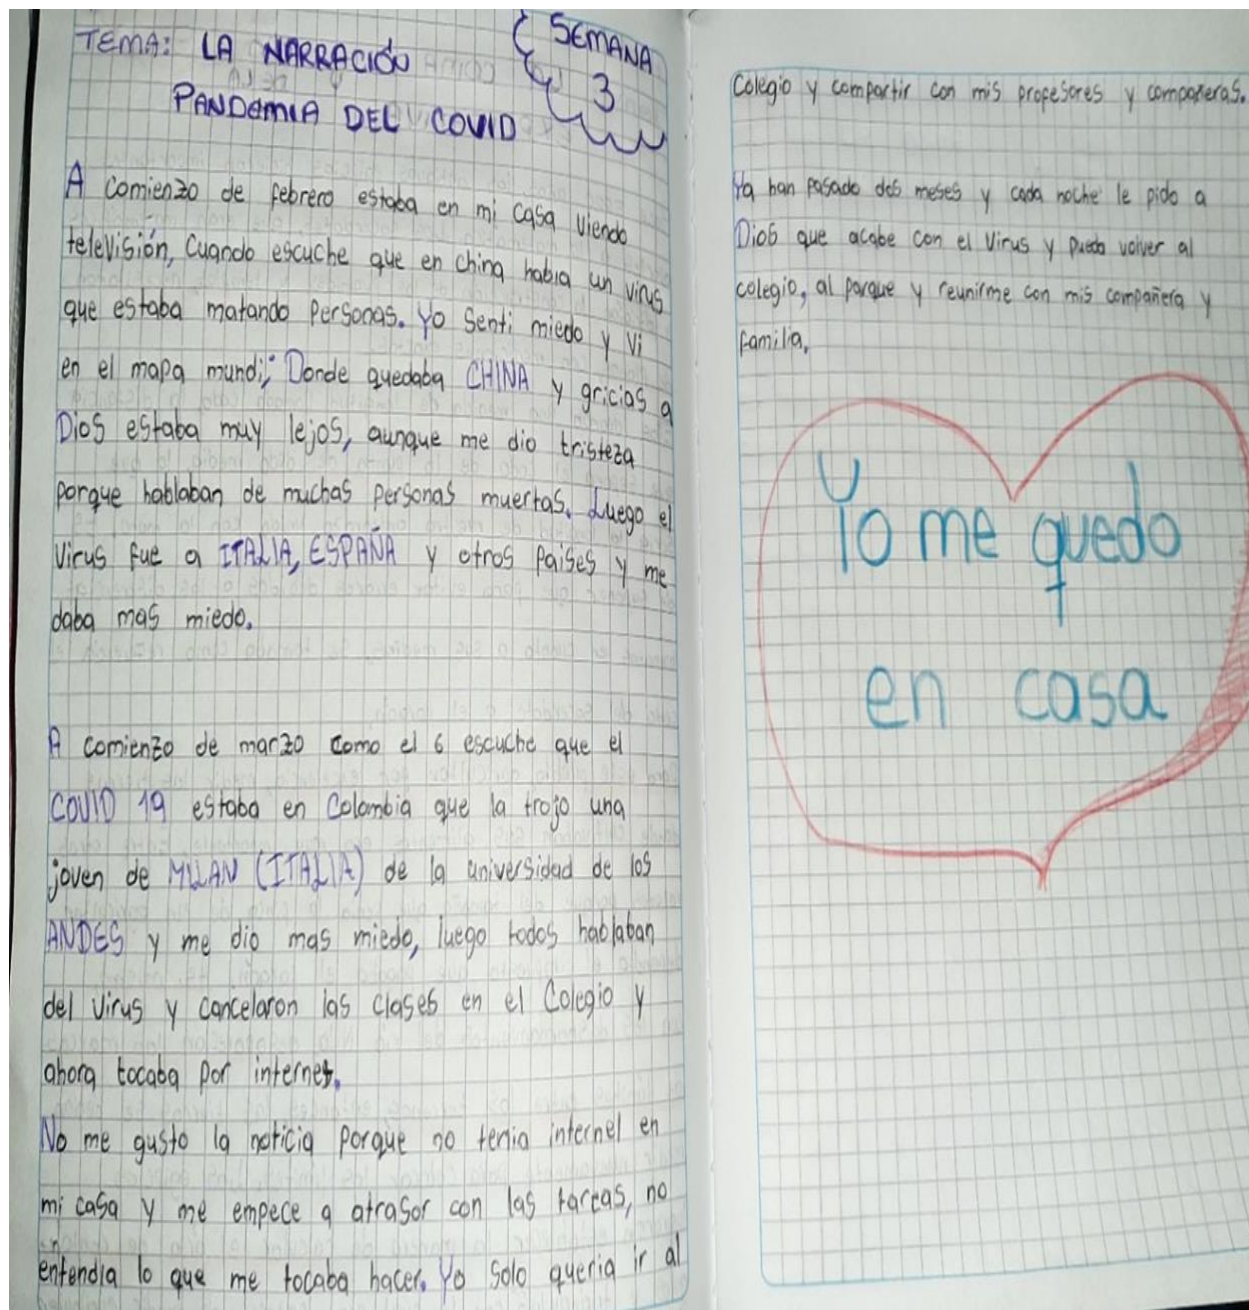 TEMA: LA NARRACIÓN
SEMANA
3
PANDEMIA DEL COVID
A comienzo de febrero estaba en mi casa viendo
televisión, Cuando escuche que en china habia un virus
que estaba matando personas. Yo Senti miedo y vi
en el mapa mundi; Donde quedaba CHINA y gricias a
Dios estaba muy lejos, aunque me dio tristeza
porque hablaban de muchas personas muertas. Luego el
Virus fue a ITALIA, ESPAÑA y otros paises y me
daba mas miedo.
A comienzo de marzo como el 6 escuche que el
COVID 19 estaba en Colombia que la trajo una
joven de MILAN (ITALIA) de la universidad de los
ANDES y me dio mas miedo, luego todos hablaban
del virus y cancelaron las clases en el Colegio y
ahora tocaba por internet.
No me gusto la noticia porque no tenia internel en
mi casa y me empece a atrasar con las tareas, no
entendia lo que me tocaba hacer. Yo solo queria ir al
Colegio y compartir con mis profesores y compañeras.
Ya han pasado dos meses y cada noche le pido a
Dios que acabe con el Virus y pueda volver al
colegio, al parque y reunirme con mis compañera y
familia,
Yo me quedo
en casa